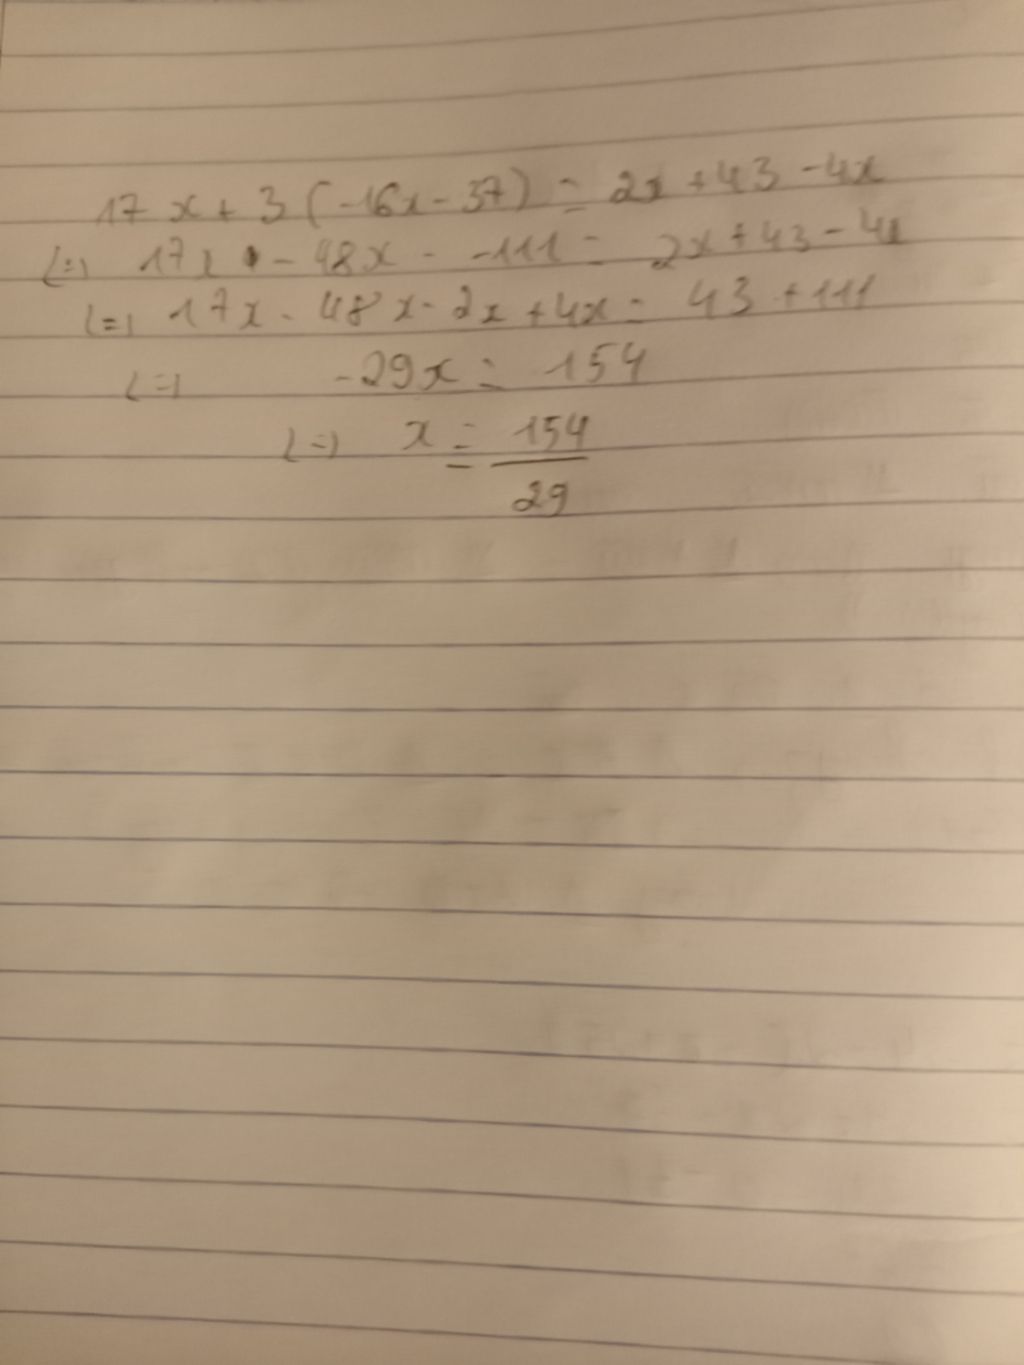 17x + 3(-16x - 37) = 2x + 43 - 4x
(=) 17x - 48x - -111 = 2x + 43 - 4x
(=) 17x - 48x - 2x + 4x = 43 + 111
(=) -29x = 154
(=) x = 154/29